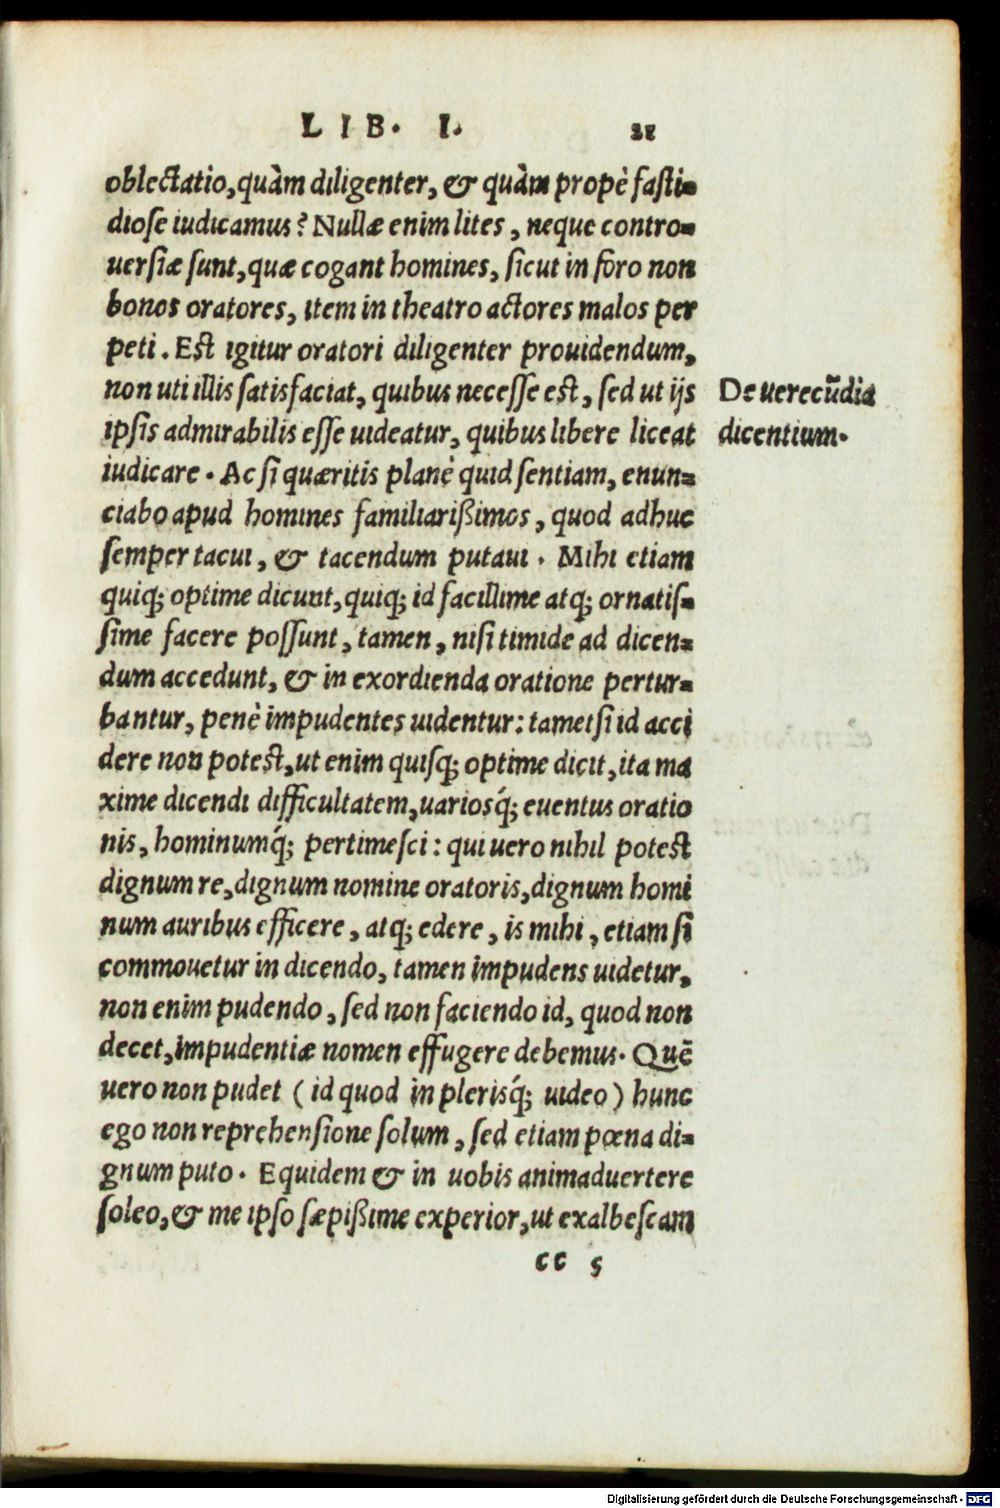 LIB. I. 21
oblectatio, quàm diligenter, & quàm propè fasti-
diose iudicamus? Nullæ enim lites, neque contro-
uersiæ sunt, quæ cogant homines, sicut in foro non
bonos oratores, item in theatro actores malos per
peti. Est igitur oratori diligenter prouidendum,
non uti illis satisfaciat, quibus necesse est, sed ut ijs
ipsis admirabilis esse uideatur, quibus libere liceat
iudicare. Ac si quæritis planè quid sentiam, enun-
ciabo apud homines familiarißimos, quod adhuc
semper tacui, & tacendum putaui. Mihi etiam
quiq; optime dicunt, quiq; id facillime atq; ornatis-
sime facere possunt, tamen, nisi timide ad dicen-
dum accedunt, & in exordienda oratione pertur-
bantur, penè impudentes uidentur: tametsi id acci
dere non potest, ut enim quisq; optime dicit, ita ma
xime dicendi difficultatem, uariosq́; euentus oratio
nis, hominumq́; pertimesci: qui uero nihil potest
dignum re, dignum nomine oratoris, dignum homi
num auribus efficere, atq; edere, is mihi, etiam si
commouetur in dicendo, tamen impudens uidetur,
non enim pudendo, sed non faciendo id, quod non
decet, impudentiæ nomen effugere debemus. Quẽ
uero non pudet (id quod in plerisq́; uideo) hunc
ego non reprehensione solum, sed etiam pœna di-
gnum puto. Equidem & in uobis animaduertere
soleo, & me ipso sæpißime experior, ut exalbescam
cc 5
De uerecũdia
dicentium.
Digitalisierung gefördert durch die Deutsche Forschungsgemeinschaft - DFG